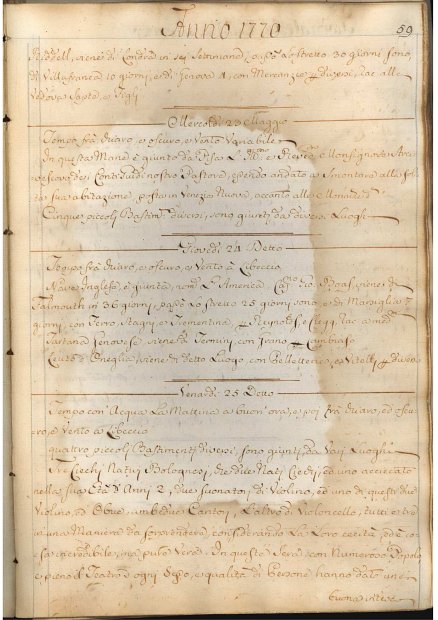 Anno 1770
59
viene di Londra in sei Settimane, passò lo stretto 30 giorni sono,
di Villafranca 10 giorni, e di Genova 4, con Mercanzie p diversi, rac alla
Vedova e Figli
Mercoledì 23 Maggio
Tempo frà chiaro, e oscuro, e Vento Variabile
In questa Mane è giunto da Pisa e Monsignore Arci-
vescovo de Conti nostro Pastore, essendo andato a Smontare alla soli-
ta sua abitazione, posta in Venezia Nuova, accanto alle Monache
Cinque piccoli Bastim diversi, sono giunti da diversi Luoghi
Giovedì 24 Detto
Tempo frà chiaro, e oscuro, e Vento à Libeccio
Nave Inglese è giunta, nom L'America, Cap Gio viene di
Falmouth in 36 giorni, passò lo stretto 25 giorni sono, e di Marsiglia 7
giorni, con Ferro, Stagni, e Trementina, p rac a med
Tartana Genovese viene di Termini, con Grano p
Leuto d'Oneglia, viene di detto Luogo, con e Vitelli p diversi
Venerdì 25 Detto
Tempo con Acqua La Mattina a buon'ora, e poi frà chiaro, ed oscu-
ro, e Vento à Libeccio
quattro piccoli Bastimenti diversi, sono giunti da Varj Luoghi
Tre Ciechi Nativi Bolognesi, che due Nati Ciechi, ed uno accecato
nella sua Età d'Anni 2, due suonatori di Violino, ed uno di questi due
Violino, ed Obuè, ambedue Cantori, L'altro di Violoncello, tutti e tre
in una Maniera da sorprendere, considerando La Loro cecità, ed è co-
sa incredibile, ma pulo Vera. In questa Sera, con Numeroso Popolo
e pieno il Teatro d'ogni Sesso, e qualità di Persone hanno dato una
buona